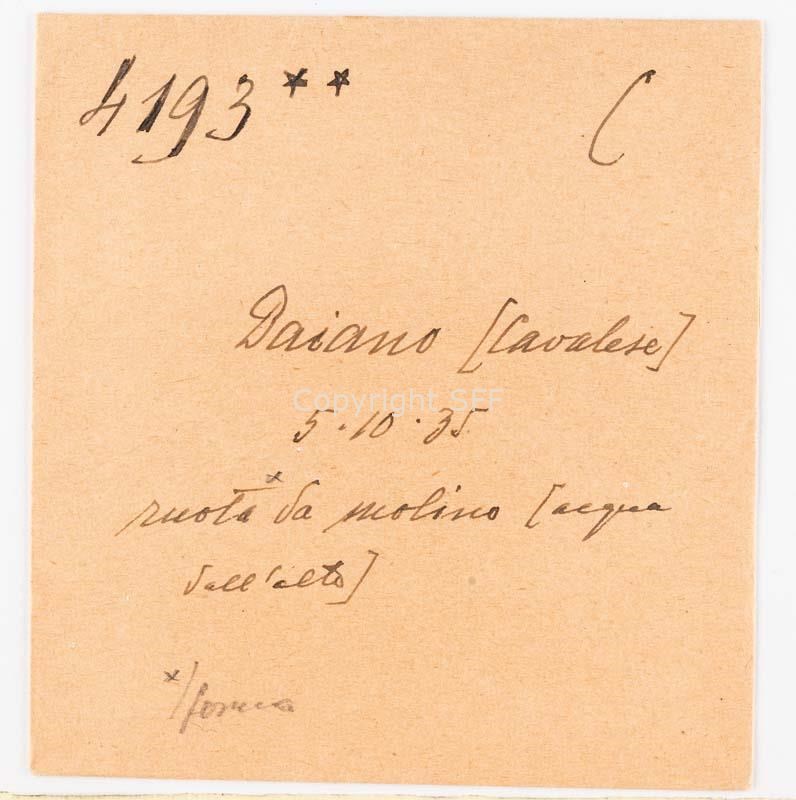 4193** C
Daiano [Cavalese]
Copyright SFF
5.10.35
ruota* da molino [acqua
dall'alto]
*/forma